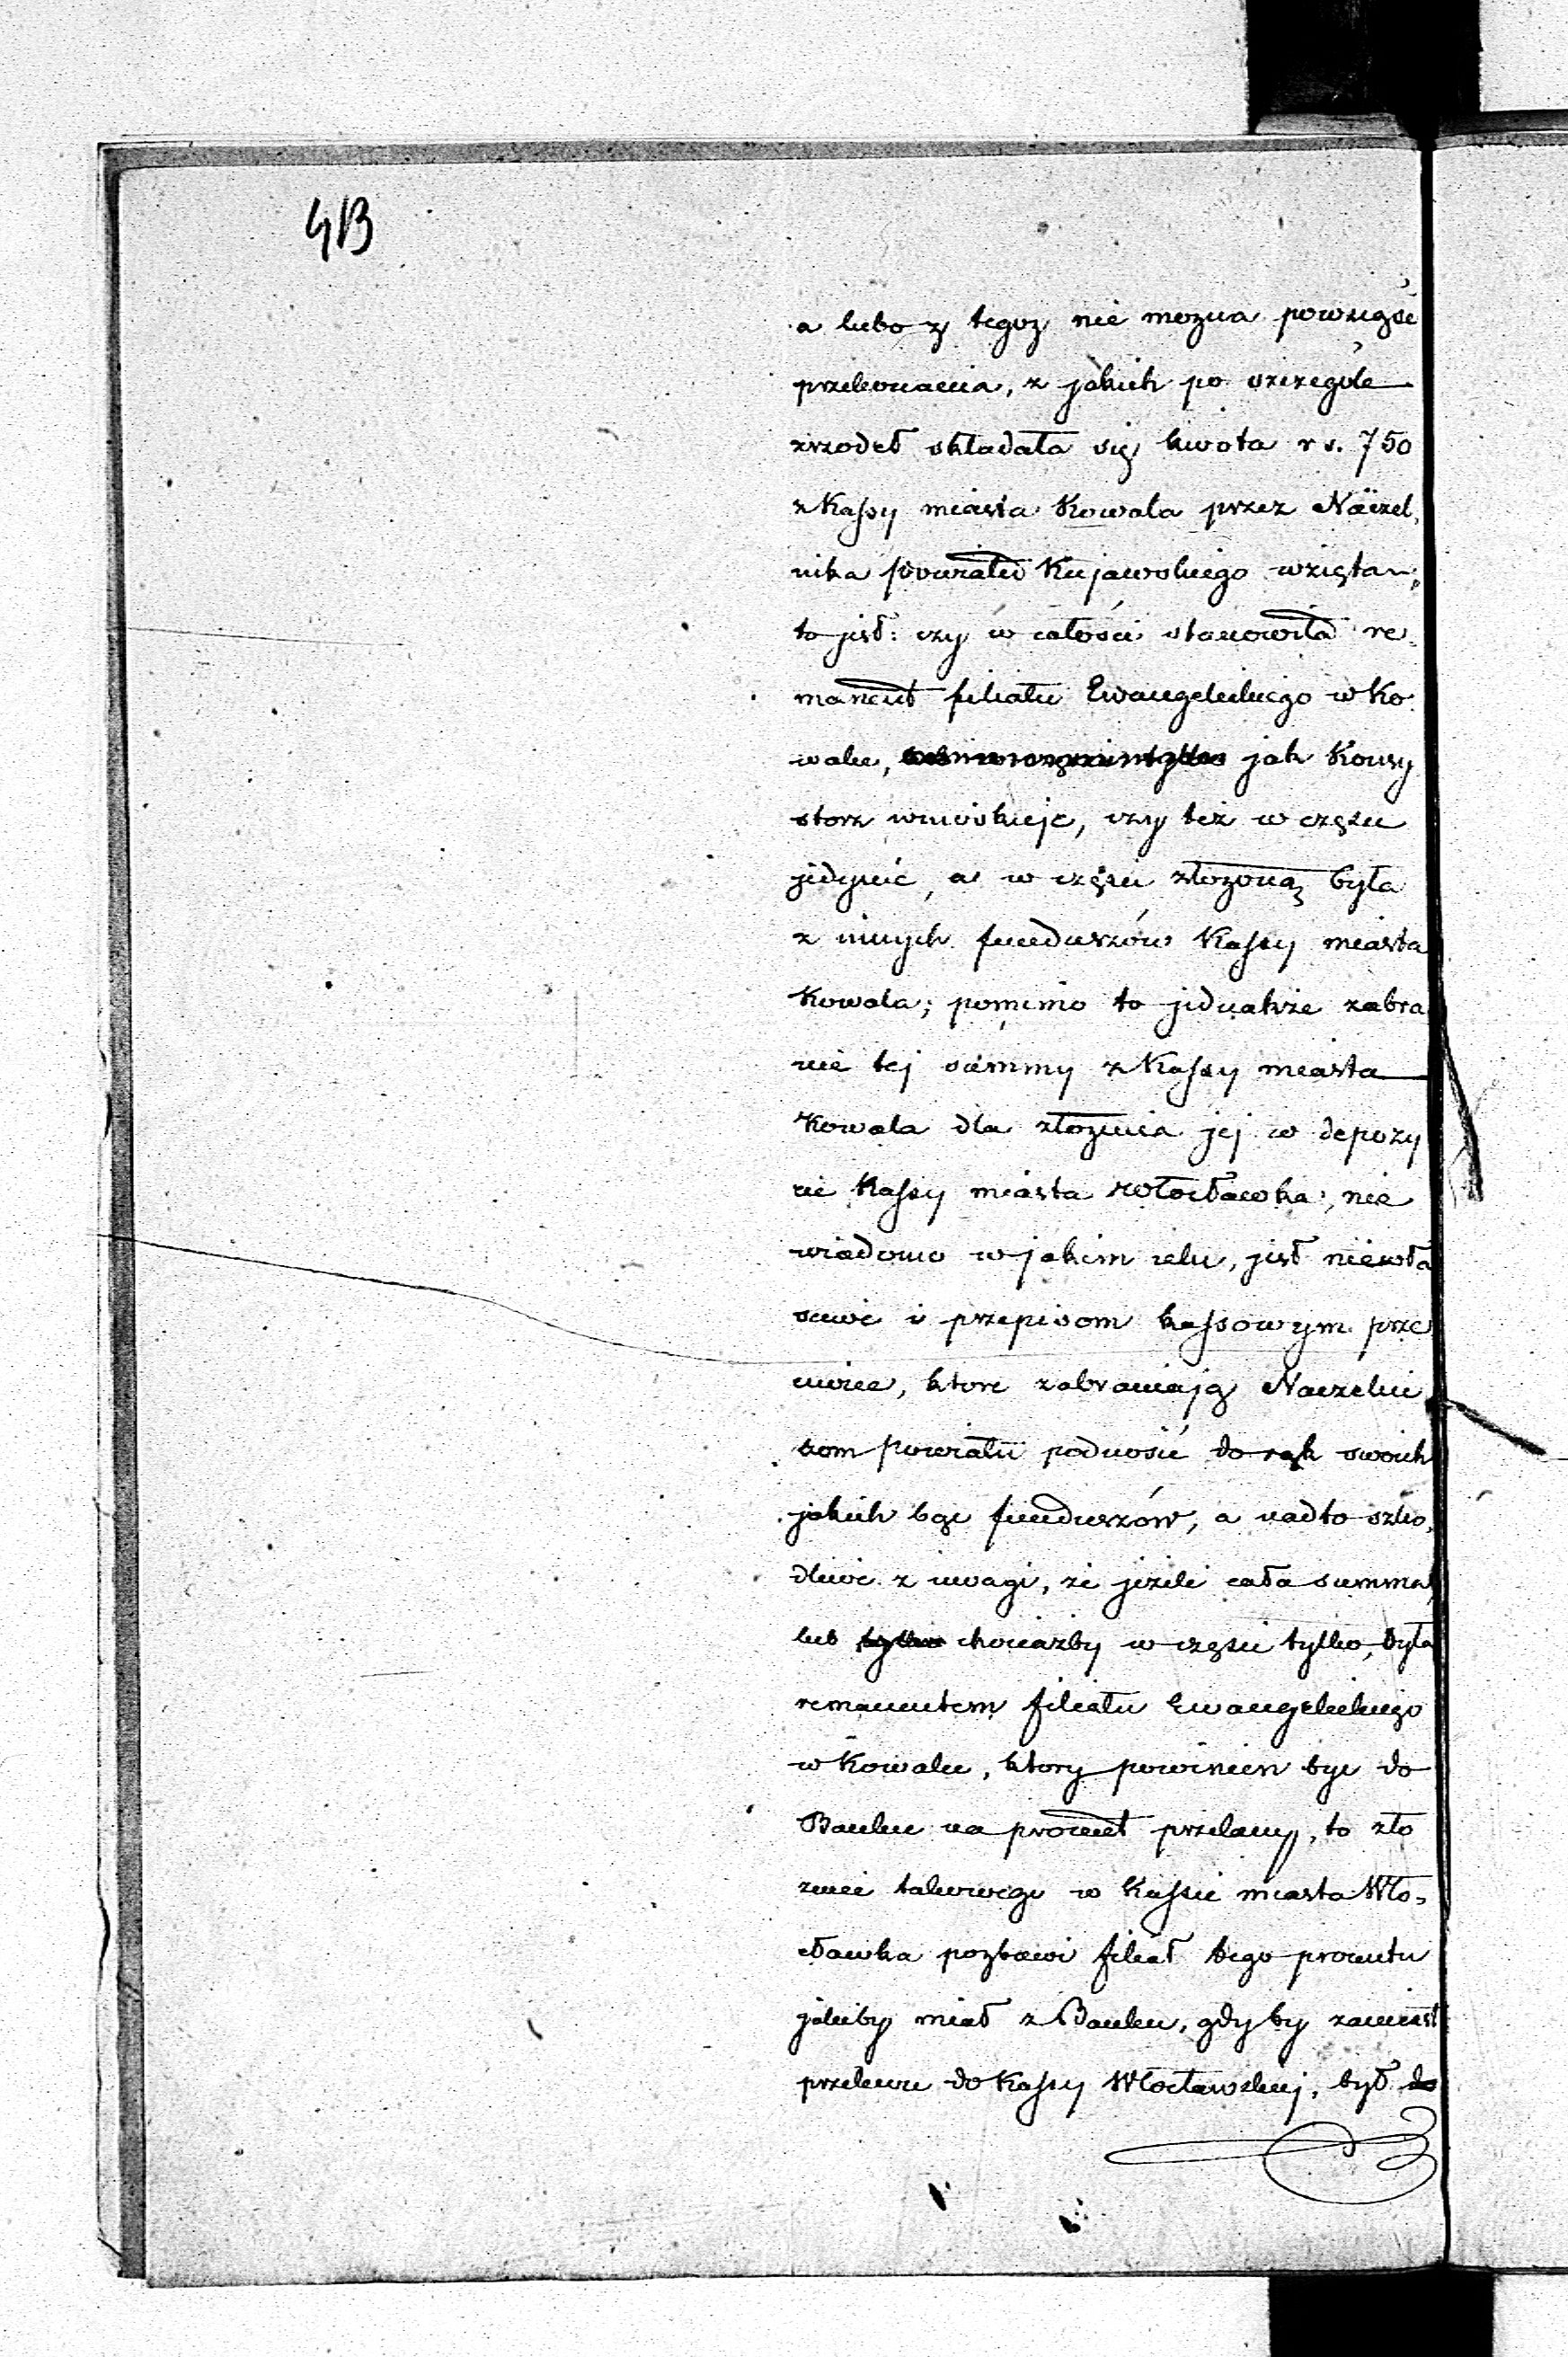 413
a lubo z tegoz nie mozna powziąść
przekonania, z jakich po szczególe
zrzodeł składała się kwota rs. 750
z Kassy miasta Kowala przez Naczel,
nika powiatu Kujawskiego wzięta –,
to jest: czy w całości stanowiła re,
manent filiału Ewangelickiego w Ko,
walu, jak Konsy
storz wnioskuje, czy też w części
jedynie, a w części złozoną była
z innych funduszów Kassy miasta
Kowala; pomimo to jednakze zabra
nie tej summy z Kassy miasta
Kowala dla złozenia jej w depozy
cie Kassy miasta Włocławka, nie
wiadomo w jakim celu, jest niewła
sciwe i przepisom kassowym prze
ciwne, ktore zabraniają Naczelni
kom powiatu podnosić do rąk swoich
jakich bąc funduszów, a nadto szko,
dliwe z uwagi, ze jezeli cała summa,
lub tylko chociazby w części tylko, była
remanentem filiału Ewangelickiego
w Kowalu, ktory powinien byc do
Banku na procent przelany, to zło
zenie takowego w Kassie miasta Wło,
cławka pozbawi filiał tego procentu
jakiby miał z Banku, gdyby zamiast
przelewu do Kassy Włocławskiej, był do